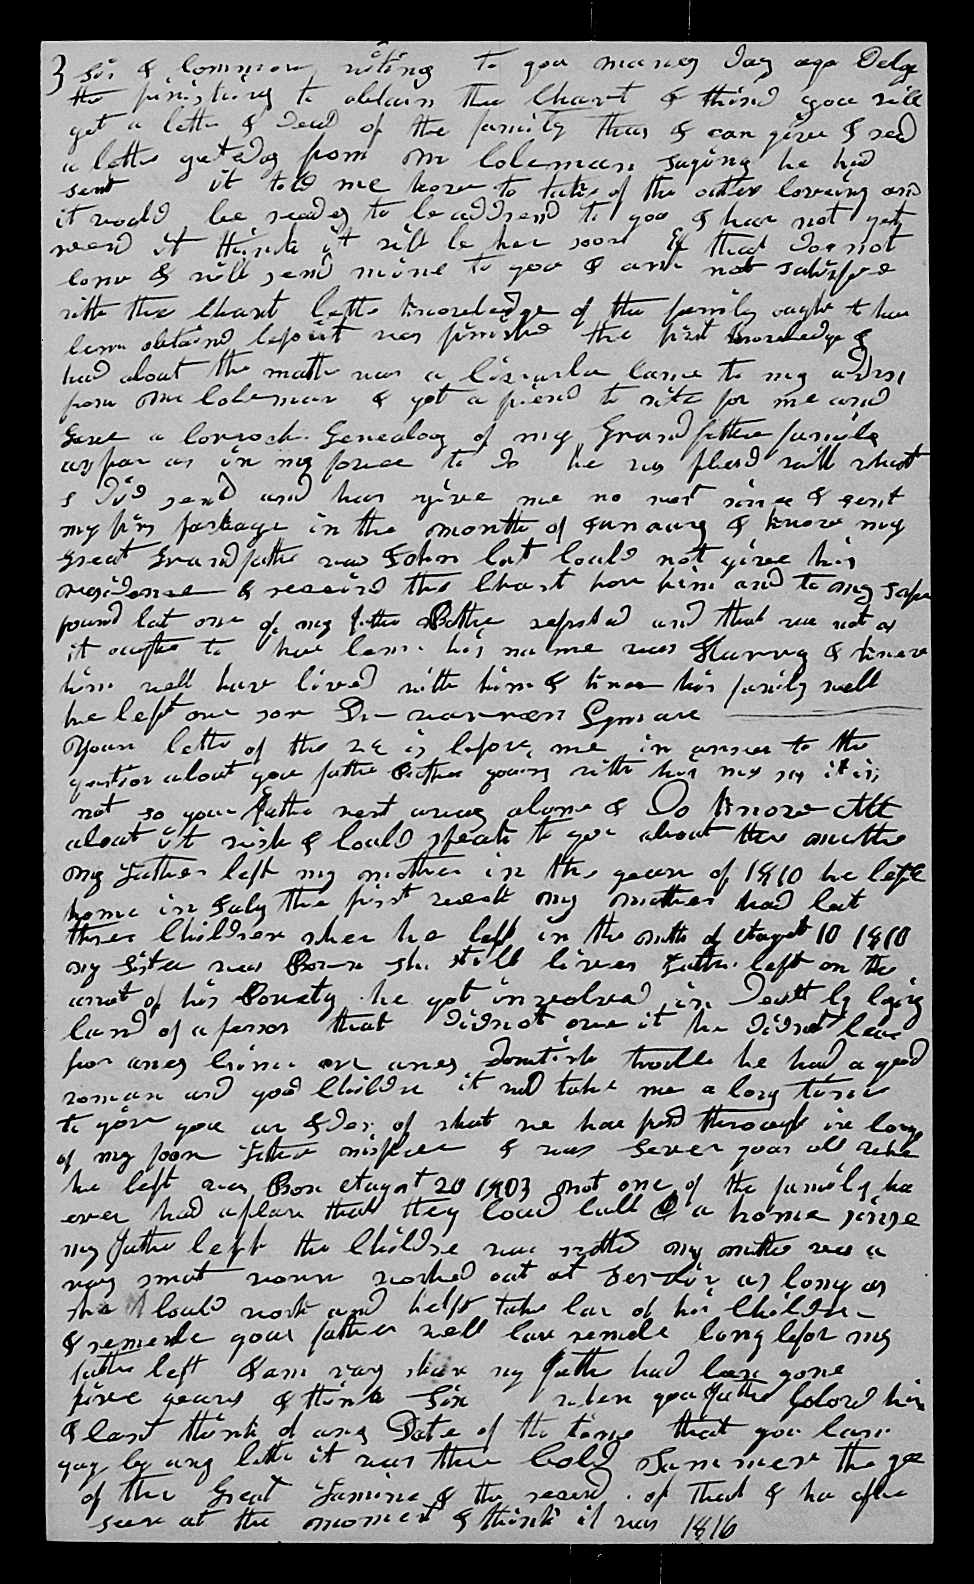 3 Sir I Commenc riting to you maney Day ago Delay
the finishing to obtain the Chart I think you will
get a lette I Dead of the family thus I can give I red
a lette yestady from Mr Coleman saying he had
sent it told me how to take of the outer covering and
it would be readey to be addresd to you I have not yet
receivd it think it will be her soon If that Dos not
come I will send mine to you I am not satisfied
with the Chart Lette knowledge of the family ought to have
been obtaind before it was finished the first knowledge I
had about the matte was a circula Came to my adres
from Mr Coleman I got a friend to rite for me and
Gave a Corrock Genealog of my Grandfather family
as far as in my power to Do he was plesd with what
I Did send and has give me no rest since I sent
my firs package in the month of Januarey I know my
Great Grandfathe was John but Could not give his
residence I receivd the Chart from him and to my surprise
found but one of my fathe Brothe reported and that was not as
it ought to have been his name was Harvey I knew
him well have lived with him I know his family well
he left one son Dr warren Lyman
Your lette of the 22 is before me in answer to the
question about your fathe Brother going with him my say it is
not so your fathe went away alone I Do know All
about it wish I could speak to you about the matte
my Father left my mother in the year of 1810 he left
home in July the first week my mother had but
three Children when he left in the month of August 10 1810
my Sister was Born she still lives Fathe left on the
acount of his Povety he got involved in Dett by bying
land of a person that Did not own it he Did not leave
for aney crime or aney Domtick troble he had a good
woman and good Childre it wud take me a long time
to give you an Idea of what we have past through in cons
of my poor Fathe misfortune I was Seven years old when
he left was Born August 20 1803 not one of the family have
ever had a place that they could call a home since
my fathe left the Childre was with my mothe was a
very smart woman worked out at Service as long as
she Could work and helpt take Car of her Childre
I remembe your father well can remembe long before my
fathe left I am very shure my fathe had been gone
five years I think Six when your fathe folowd him
I cant think of any Date of the time that you can
gage by any lette it was the Cold Summer the yea
of the Great Famine I the record of that I have often
seen at the moment I think it was 1816